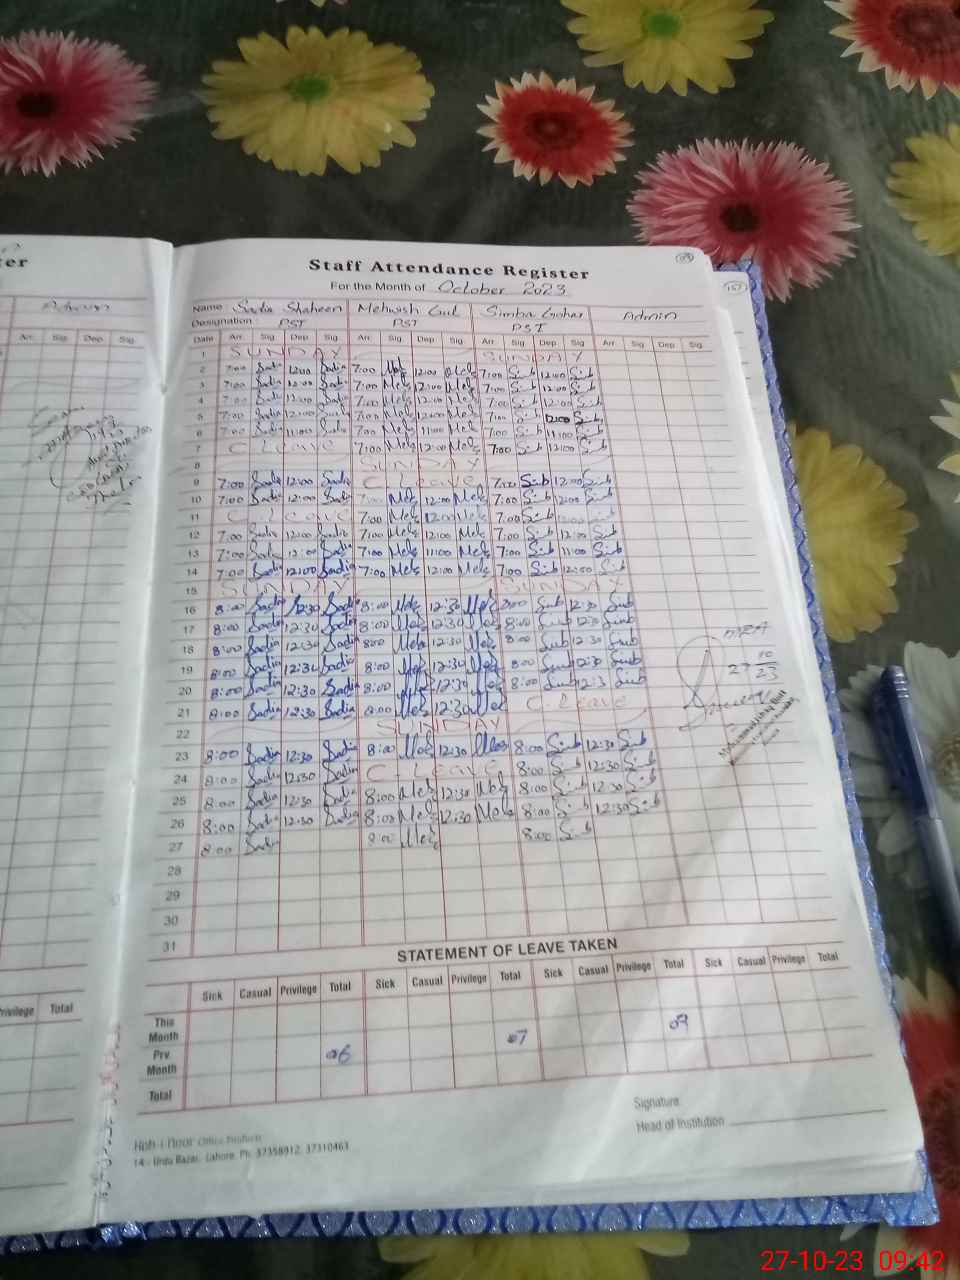 ter
Staff Attendance Register
For the Month of October 2023
Name : Sadia Shaheen Mehwish Gul Simba Gohar Admin
Designation : PST PST PST
Date Arr. Sig. Dep. Sig. Arr. Sig. Dep. Sig. Arr. Sig. Dep. Sig. Arr. Sig. Dep. Sig.
Arr. Sig. Dep. Sig.
1 SUNDAY SUNDAY
2 7:00 Sadia 12:00 Sadia 7:00 Meh 12:00 Meh 7:00 Simb 12:00 Simb
3 7:00 Sadia 12:00 Sadia 7:00 Meh 12:00 Meh 7:00 Simb 12:00 Simb
4 7:00 Sadia 12:00 Sadia 7:00 Meh 12:00 Meh 7:00 Simb 12:00 Simb
5 7:00 Sadia 12:00 Sadia 7:00 Meh 12:00 Meh 7:00 Simb 12:00 Simb
6 7:00 Sadia 11:00 Sadia 7:00 Meh 11:00 Meh 7:00 Simb 11:00 Simb
7 C. Leave 7:00 Meh 12:00 Meh 7:00 Simb 12:00 Simb
8 SUNDAY
9 7:00 Sadia 12:00 Sadia C. Leave 7:00 Simb 12:00 Simb
10 7:00 Sadia 12:00 Sadia 7:00 Meh 12:00 Meh 7:00 Simb 12:00 Simb
11 C. Leave 7:00 Meh 12:00 Meh 7:00 Simb 12:00 Simb
12 7:00 Sadia 12:00 Sadia 7:00 Meh 12:00 Meh 7:00 Simb 12:00 Simb
13 7:00 Sadia 12:00 Sadia 7:00 Meh 11:00 Meh 7:00 Simb 11:00 Simb
14 7:00 Sadia 12:00 Sadia 7:00 Meh 12:00 Meh 7:00 Simb 12:00 Simb
15 SUNDAY SUNDAY
16 8:00 Sadia 12:30 Sadia 8:00 Meh 12:30 Meh 8:00 Simb 12:30 Simb
17 8:00 Sadia 12:30 Sadia 8:00 Meh 12:30 Meh 8:00 Simb 12:30 Simb
18 8:00 Sadia 12:30 Sadia 8:00 Meh 12:30 Meh 8:00 Simb 12:30 Simb
19 8:00 Sadia 12:30 Sadia 8:00 Meh 12:30 Meh 8:00 Simb 12:30 Simb
20 8:00 Sadia 12:30 Sadia 8:00 Meh 12:30 Meh 8:00 Simb 12:3 Simb
21 8:00 Sadia 12:30 Sadia 8:00 Meh 12:30 Meh C. Leave
22 SUNDAY
23 8:00 Sadia 12:30 Sadia 8:00 Meh 12:30 Meh 8:00 Simb 12:30 Simb
24 8:00 Sadia 12:30 Sadia C. Leave 8:00 Simb 12:30 Simb
25 8:00 Sadia 12:30 Sadia 8:00 Meh 12:30 Meh 8:00 Simb 12:30 Simb
26 8:00 Sadia 12:30 Sadia 8:00 Meh 12:30 Meh 8:00 Simb 12:30 Simb
27 8:00 Sadia 8:00 Meh 8:00 Simb
28
29
30
31
27 10/23
STATEMENT OF LEAVE TAKEN
Sick Casual Privilege Total Sick Casual Privilege Total Sick Casual Privilege Total Sick Casual Privilege Total
Total
This Month
Prv. Month 06 07 07
Total
Signature
Head of Institution
Koh-i-Noor Office Products
14 - Urdu Bazar, Lahore. Ph: 37358912, 37310463
27-10-23 09:42